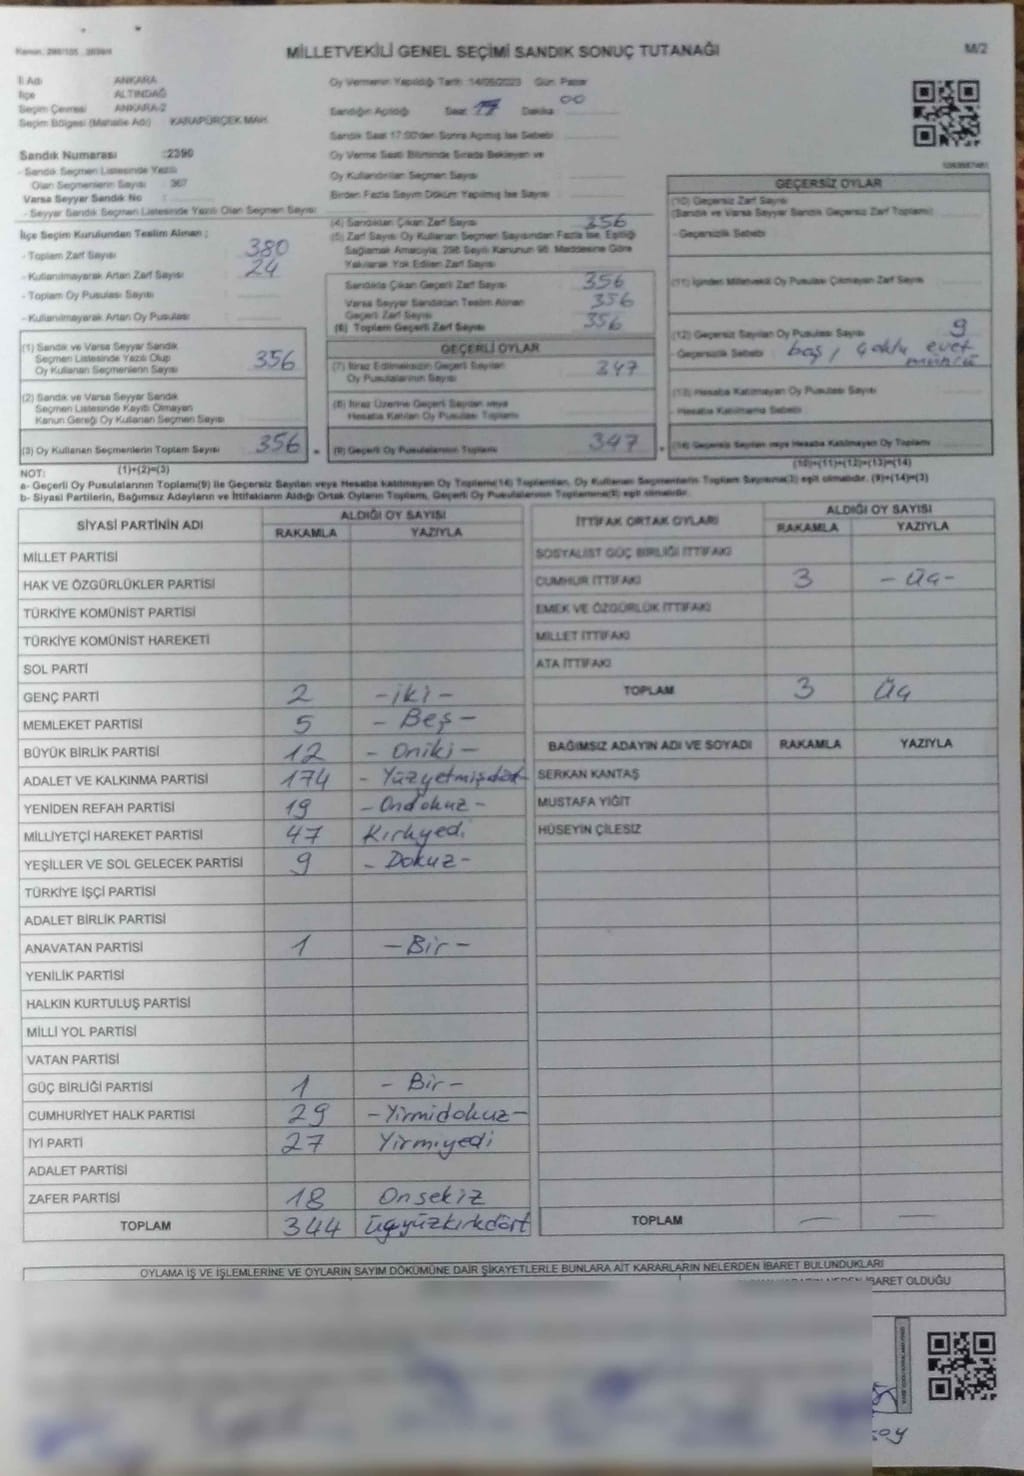 MİLLETVEKİLİ GENEL SEÇİMİ SANDIK SONUÇ TUTANAĞI
M/2
İl Adı ANKARA
İlçe ALTINDAĞ
Seçim Çevresi ANKARA-2
Seçim Bölgesi (Mahalle Adı) KARAPÜRÇEK MAH.
Sandık Numarası :2390
- Sandık Seçmen Listesinde Yazılı
Olan Seçmenlerin Sayısı : 367
Varsa Seyyar Sandık No :
- Seyyar Sandık Seçmen Listesinde Yazılı Olan Seçmen Sayısı:
Oy Vermenin Yapıldığı Tarih: 14/05/2023 Gün: Pazar
Sandığın Açıldığı Saat 17 Dakika 00
Sandık Saat 17:00'den Sonra Açılmış İse Sebebi
Oy Verme Saati Bitiminde Sırada Bekleyen ve
Oy Kullandırılan Seçmen Sayısı :
Birden Fazla Sayım Döküm Yapılmış İse Sayısı
İlçe Seçim Kurulundan Teslim Alınan ;
- Toplam Zarf Sayısı : 380
- Kullanılmayarak Artan Zarf Sayısı 24
- Toplam Oy Pusulası Sayısı :
- Kullanılmayarak Artan Oy Pusulası
(1) Sandık ve Varsa Seyyar Sandık
Seçmen Listesinde Yazılı Olup
Oy Kullanan Seçmenlerin Sayısı 356
(2) Sandık ve Varsa Seyyar Sandık
Seçmen Listesinde Kayıtlı Olmayan
Kanun Gereği Oy Kullanan Seçmen Sayısı
(3) Oy Kullanan Seçmenlerin Toplam Sayısı 356
(1)+(2)=(3)
(4) Sandıktan Çıkan Zarf Sayısı 356
(5) Zarf Sayısı Oy Kullanan Seçmen Sayısından Fazla İse, Eşitliği
Sağlamak Amacıyla; 298 Sayılı Kanunun 98. Maddesine Göre
Yakılarak Yok Edilen Zarf Sayısı
Sandıkta Çıkan Geçerli Zarf Sayısı 356
Varsa Seyyar Sandıktan Teslim Alınan
Geçerli Zarf Sayısı 356
(6) Toplam Geçerli Zarf Sayısı 356
GEÇERLİ OYLAR
(7) İtiraz Edilmeksizin Geçerli Sayılan
Oy Pusulalarının Sayısı 347
(8) İtiraz Üzerine Geçerli Sayılan veya
Hesaba Katılan Oy Pusulası Toplamı
(9) Geçerli Oy Pusulalarının Toplamı 347
GEÇERSİZ OYLAR
(10) Geçersiz Zarf Sayısı
(Sandık ve Varsa Seyyar Sandık Geçersiz Zarf Toplamı)
- Geçersizlik Sebebi
(11) İçinden Milletvekili Oy Pusulası Çıkmayan Zarf Sayısı
(12) Geçersiz Sayılan Oy Pusulası Sayısı 9
- Geçersizlik Sebebi : boş, çoklu evet
mührü
(13) Hesaba Katılmayan Oy Pusulası Sayısı
- Hesaba Katılmama Sebebi
(14) Geçersiz Sayılan veya Hesaba Katılmayan Oy Toplamı
(10)+(11)+(12)+(13)=(14)
NOT:
a- Geçerli Oy Pusulalarının Toplamı(9) ile Geçersiz Sayılan veya Hesaba katılmayan Oy Toplamı(14) Toplamları, Oy Kullanan Seçmenlerin Toplam Sayısına(3) eşit olmalıdır. (9)+(14)=(3)
b- Siyasi Partilerin, Bağımsız Adayların ve İttifakların Aldığı Ortak Oyların Toplamı, Geçerli Oy Pusulalarının Toplamına(9) eşit olmalıdır.
SİYASİ PARTİNİN ADI ALDIĞI OY SAYISI
RAKAMLA YAZIYLA
MİLLET PARTİSİ
HAK VE ÖZGÜRLÜKLER PARTİSİ
TÜRKİYE KOMÜNİST PARTİSİ
TÜRKİYE KOMÜNİST HAREKETİ
SOL PARTİ
GENÇ PARTİ 2 -iki-
MEMLEKET PARTİSİ 5 - Beş -
BÜYÜK BİRLİK PARTİSİ 12 - Oniki -
ADALET VE KALKINMA PARTİSİ 174 - Yüzyetmişdört
YENİDEN REFAH PARTİSİ 19 -Ondokuz-
MİLLİYETÇİ HAREKET PARTİSİ 47 Kırkyedi
YEŞİLLER VE SOL GELECEK PARTİSİ 9 - Dokuz-
TÜRKİYE İŞÇİ PARTİSİ
ADALET BİRLİK PARTİSİ
ANAVATAN PARTİSİ 1 -Bir-
YENİLİK PARTİSİ
HALKIN KURTULUŞ PARTİSİ
MİLLİ YOL PARTİSİ
VATAN PARTİSİ
GÜÇ BİRLİĞİ PARTİSİ 1 - Bir-
CUMHURİYET HALK PARTİSİ 29 -Yirmidokuz-
İYİ PARTİ 27 Yirmiyedi
ADALET PARTİSİ
ZAFER PARTİSİ 18 Onsekiz
TOPLAM 344 üçyüzkırkdört
İTTİFAK ORTAK OYLARI ALDIĞI OY SAYISI
RAKAMLA YAZIYLA
SOSYALİST GÜÇ BİRLİĞİ İTTİFAKI
CUMHUR İTTİFAKI 3 - üç -
EMEK VE ÖZGÜRLÜK İTTİFAKI
MİLLET İTTİFAKI
ATA İTTİFAKI
TOPLAM 3 üç
BAĞIMSIZ ADAYIN ADI VE SOYADI RAKAMLA YAZIYLA
SERKAN KANTAŞ
MUSTAFA YİĞİT
HÜSEYİN ÇİLESİZ
TOPLAM — —
OYLAMA İŞ VE İŞLEMLERİNE VE OYLARIN SAYIM DÖKÜMÜNE DAİR ŞİKAYETLERLE BUNLARA AİT KARARLARIN NELERDEN İBARET BULUNDUKLARI
İBARET OLDUĞU